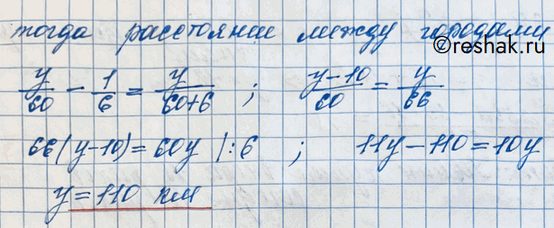 тогда расстояние между городами
©reshak.ru
y/60 − 1/6 = y/(60+6) ; (y−10)/60 = y/66
66(y−10) = 60y |:6 ; 11y − 110 = 10y
y = 110 км